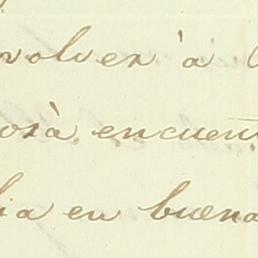 volver à
orà encuen
ia en buena